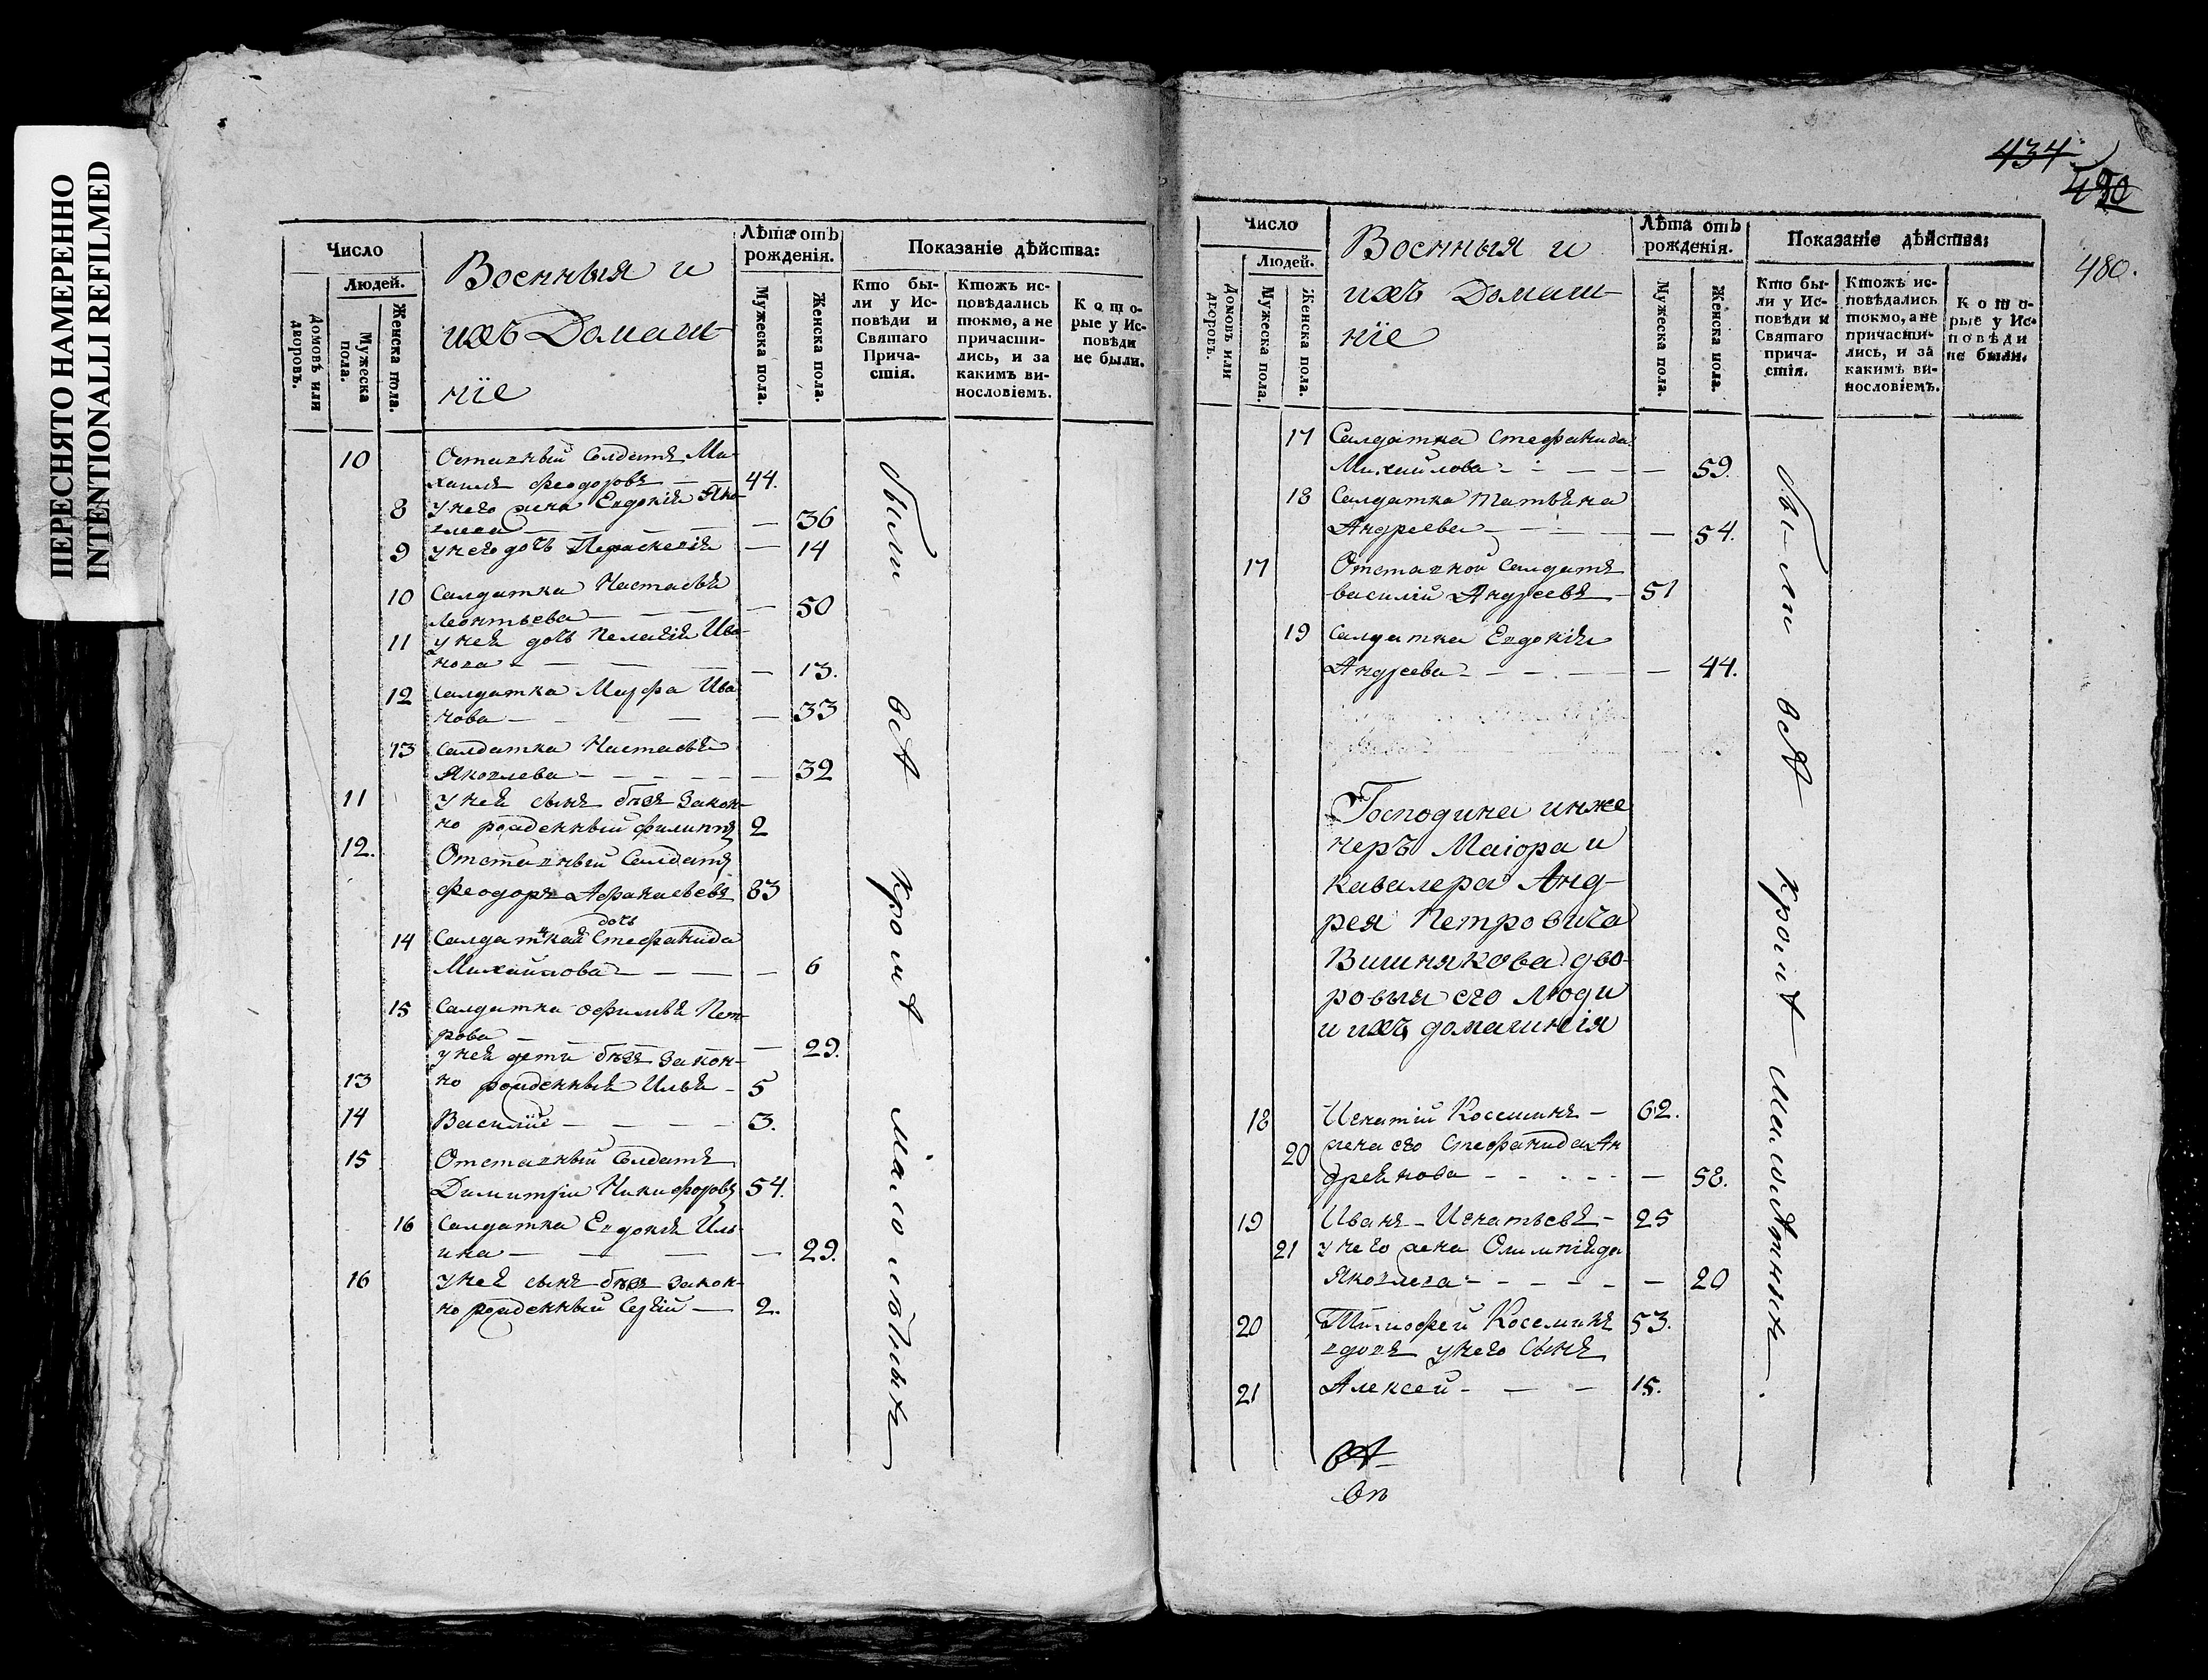 ПЕРЕСНЯТО НАМЕРЕННО
INTENTIONALLI REFILMED
Число
Людей.
Домовъ или дворовъ.
Мужеска пола.
Женска пола.
Военныя и
ихъ Домаш-
нїе
Лѣта отъ рожденія.
Мужеска пола.
Женска пола.
Показаніе дѣйства:
Кто бы-
ли у Ис-
повѣди и
Святаго
Прича-
стія.
Ктожъ ис-
повѣдались
токмо, а не
причасти-
лись, и за
какимъ ви-
нословіемъ.
Кото-
рые у Ис-
повѣди
не были.
10 Отставный Солдатъ Ми-
хаилъ Феодоровъ — 44.
8 У него жена Евдокія Яко-
влева — — 36
9 у него дочь Параскевія — 14
10 Салдатка Настасья
Леонтьева — — 50
11 у ней дочь Пелагія Ива-
нова — — 13.
12 Салдатка Марфа Ива-
нова — — 33
13 Салдатка Настасья
Яковлева — — 32
11 у ней сынъ безъ закон-
но рожденный Филиппъ 2
12. Отставный Салдатъ
Феодоръ Афанасьевъ 83
дочь
14 Салдатская Стефанида
Михайлова — — 6
15 Салдатка Офимья Пет-
рова — — 29.
у ней дети безъ закон-
13 но рожденныя Илья — 5
14 Василїй — 3.
15 Отставный Солдатъ
Димитрїй Никифоровъ 54.
16 Салдатка Евдокія Иль-
ина — — 29.
16 у ней сынъ безъ закон-
но рожденный Сергїй — 2.
были всѣ кромѣ малолѣтныхъ
434
480.
Число
Людей.
Домовъ или дворовъ.
Мужеска пола.
Женска пола.
Военныя и
ихъ Домаш-
нїе
Лѣта отъ рожденія.
Мужеска пола.
Женска пола.
Показаніе дѣйства:
Кто бы-
ли у Ис-
повѣди и
Святаго
прича-
стія.
Ктожъ ис-
повѣдались
токмо, а не
причасти-
лись, и за
какимъ ви-
нословіемъ.
Кото-
рые у Ис-
повѣди
не были.
17 Салдатка Стефанида
Михайлова — — 59.
18 Салдатка Татьяна
Андреева — — 54.
17 Отставной Салдатъ
Василїй Андреевъ — 51
19 Салдатка Евдокія
Андреева — — 44.
Господина инже
неръ Маіора и
Кавалера Анд-
рея Петровича
Вишнякова дво-
ровыя его люди
и ихъ домашнія
18 Игнатїй Косеминъ — 62.
20 жена его Стефанида Ан
дреянова — — 58.
19 Иванъ Игнатьевъ — 25
21 у него жена Олимпіяда
Яковлева — — 20
20 Тимофей Косеминъ 53.
вдовъ у него Сынъ
21 Алексей — 15.
были всѣ кромѣ малолѣтныхъ.